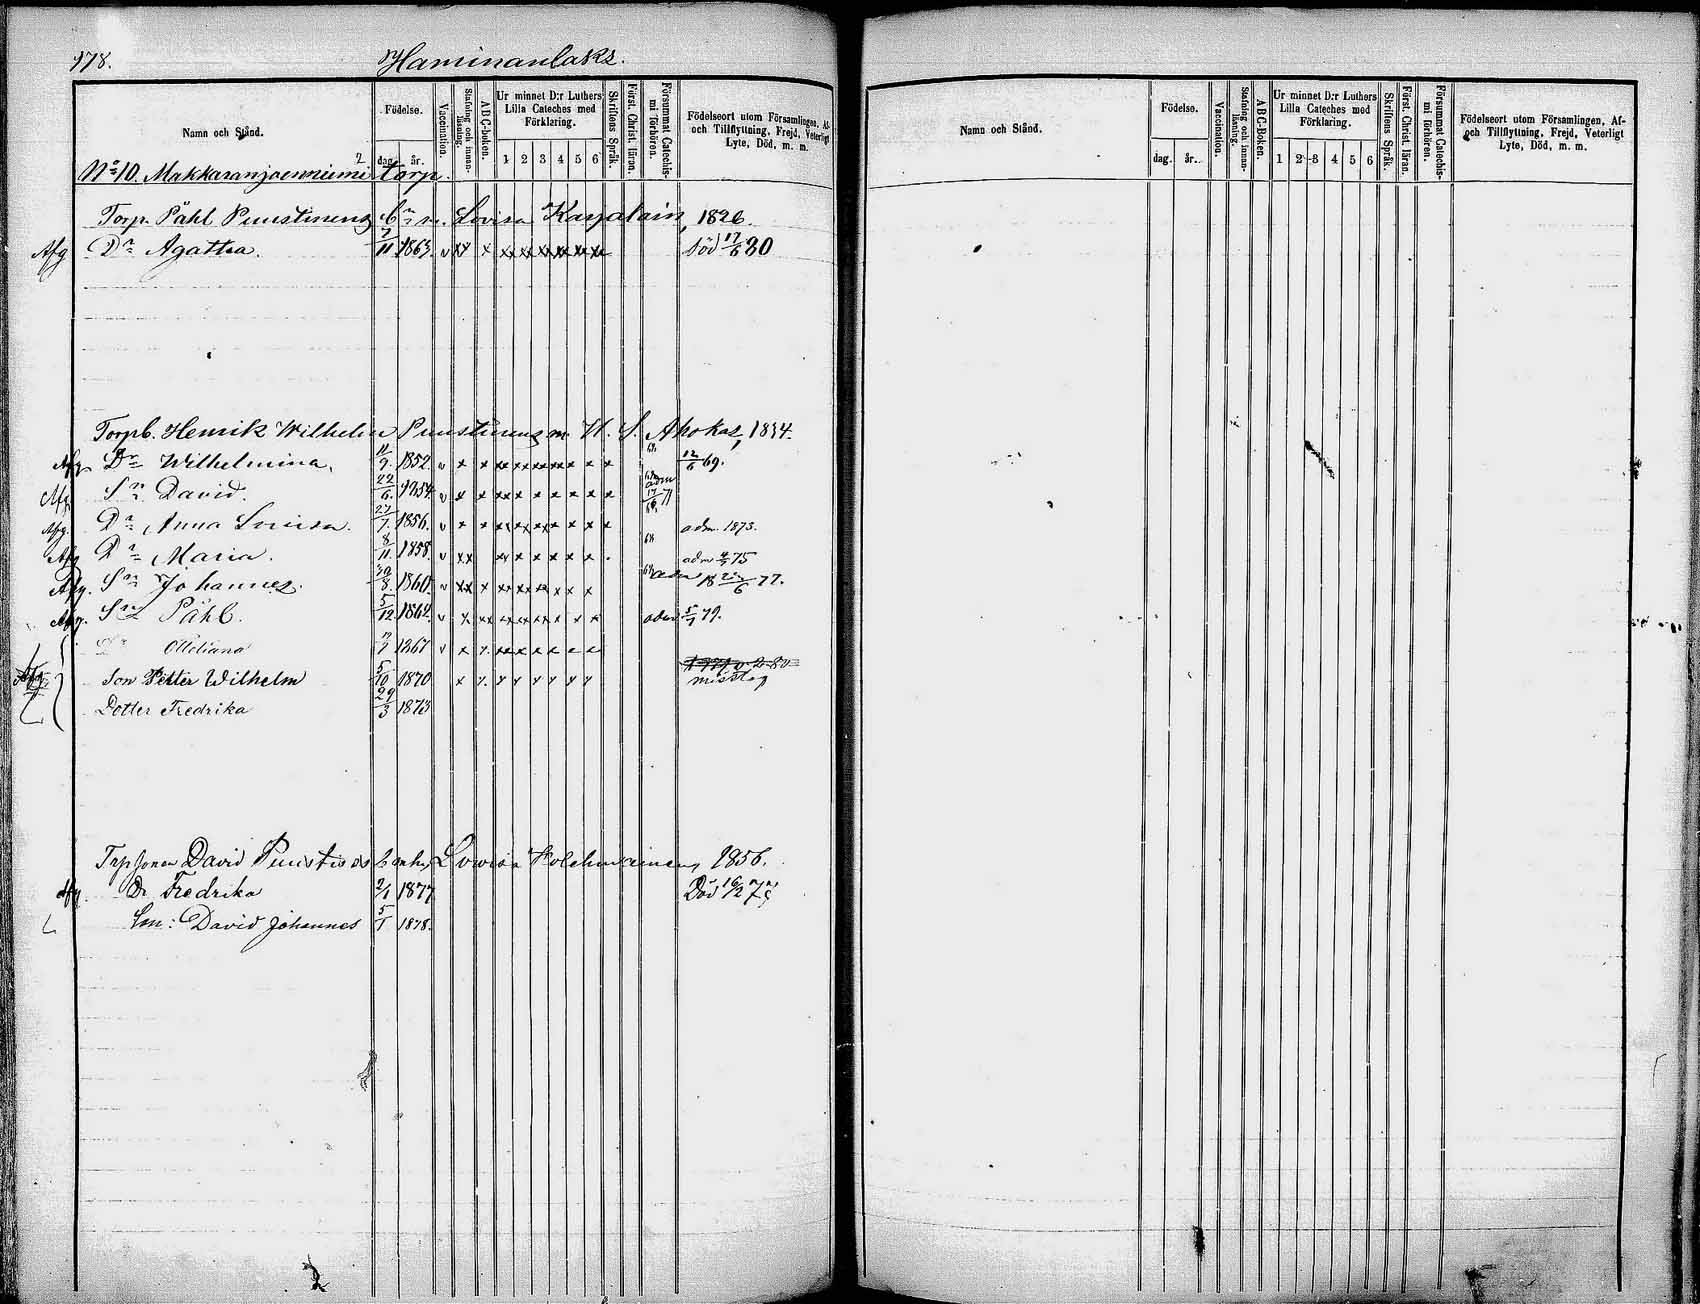 178. Haminanlaks.
Namn och Stånd. Födelse. dag. år. Vaccination. Stafning och innanläsning. ABC-boken. Ur minnet D:r Luthers Lilla Cateches med Förklaring. 1 2 3 4 5 6 Skriftens Språk. Först. Christ. läran. Försummat Catechismi förhören. Födelseort utom Församlingen, Af- och Tillflyttning, Frejd, Veterligt Lyte, Död, m. m.
No 10. Makkaranjoenniemi torp.
Torp. Påhl Puustinens m. Lovisa Karjalain, 1826.
Afg Dr Agatha. 7/11 1863. v xx x xx xx xx xx xx xx död 17/6 80
Torpb. Henrik Wilhelm Puustinens m. H. S. Ahokas, 1834.
Afg. Dr Wilhelmina. 11/9. 1852. v x x xx xx xx xx x x x 12/6 69.
Afg Sn David. 22/6. 1854. v x x xx x x x x x x adm 17/6 71
Afg. Dr Anna Lovisa. 27/7. 1856. v x x xx xx xx x x x x adm. 1873.
Afg Dr Maria. 8/11. 1858. v xx xx x x x x x adm 4/7 75
Afg. Sn Johannes. 30/8. 1860. v xx x xx xx xx x x x adm 18 /6 77.
Afg. Sn Påhl. 5/12. 1862. v x xx xx xx xx x x x adm 5/7 79.
Ottiliana 1867 v x x xx x x x
Afg Son Petter Wilhelm 5/10 1870 x x x x x x x x misstag
Dotter Fredrika 29/3 1873
David Lovisa Kolehmainen, 1856.
Afg. Dr Fredrika 2/1 1877 Död 16/2
Sn: David Johannes 5/1 1878.
Namn och Stånd. Födelse. dag. år. Vaccination. Stafning och innanläsning. ABC-Boken. Ur minnet D:r Luthers Lilla Cateches med Förklaring. 1 2 3 4 5 6 Skriftens Språk. Först. Christ. läran. Försummat Catechismi förhören. Födelseort utom Församlingen, Af- och Tillflyttning, Frejd, Veterligt Lyte, Död, m. m.